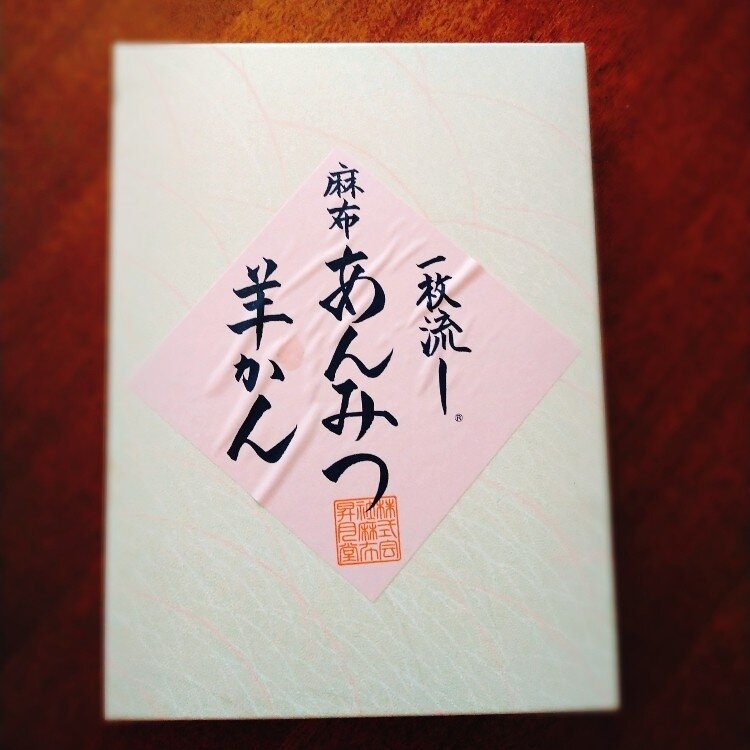 一枚流し®
麻布あんみつ
羊かん
株式会
社麻布
昇月堂